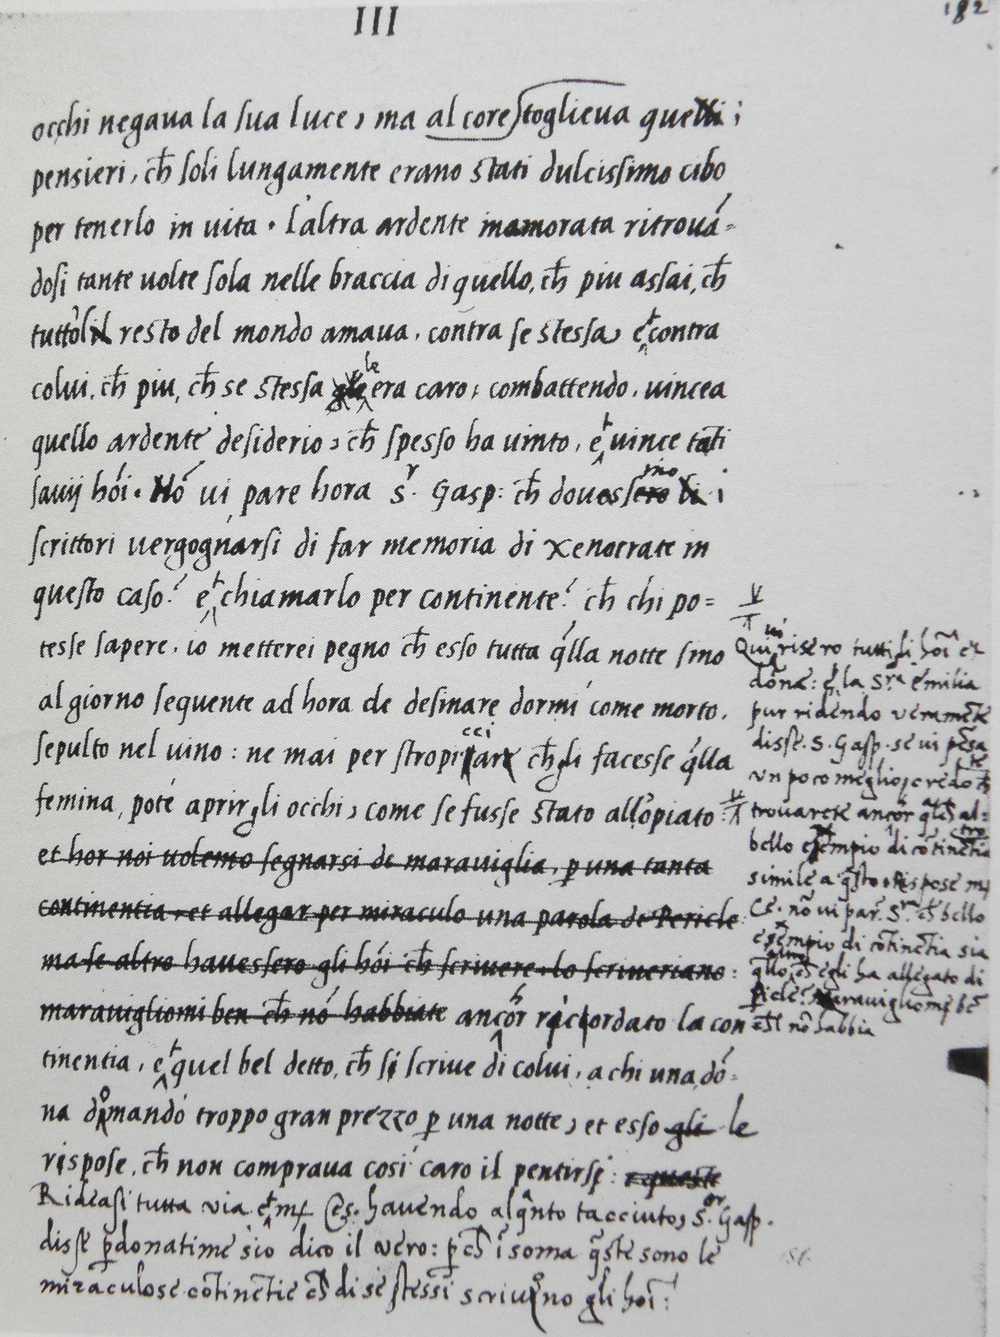 III
182
occhi negaua la sua luce, ma al core toglieua quelli i
pensieri, ch̃ soli lungamente erano stati dulcissimo cibo
per tenerlo in uita. L'altra ardente inamorata ritrouã=
dosi tante uolte sola nelle braccia di quello, ch̃ piu assai, ch̃
tutto'l resto del mondo amaua, contra se stessa, et contra
colui, ch̃ piu, ch̃ se stessa le era caro, combattendo, uincea
quello ardente desiderio, ch̃ spesso ha uinto, et uince tãti
sauij hõi. Nõ ui pare hora s.r Gasp: ch̃ douessero li i
scrittori uergognarsi di far memoria di xenocrate in
questo caso? et chiamarlo per continente? ch̃ chi po=
tesse sapere, io metterei pegno ch̃ esso tutta q̃lla notte sino
al giorno sequente ad hora de desinare dormì come morto,
sepulto nel uino: ne mai per stropicciar ch̃ gli facesse q̃lla
femina, poté aprir gli occhi, come se fusse stato allopiato
et hor noi uolemo segnarsi de marauiglia, p una tanta
continentia, et allegar per miraculo una parola de Pericle
ma se altro hauessero gli hõi ch̃ scriuere, lo scriueriano:
marauigliomi ben ch̃ nõ habbiate anchor ricordato la con
tinentia, et quel bel detto, ch̃ si scriue di colui, a chi una dõ=
na domandò troppo gran prezzo p una notte, et esso gli le
rispose, ch̃ non compraua così caro il pentirsi: queste
Rideasi tutta via et mr Ces. hauendo alq̃nto tacciuto, S.or Gasp.
disse p̃donatime s'io dico il vero: p ch̃ ĩ soma q̃ste sono le
miraculose cõtinẽtie ch̃ di se stessi scriuono gli hoĩ:
Qui risero tutti li hoĩ et
dõne: et la S.ra Emilia
pur ridendo veramẽte
disse. S. Gasp. se ui pẽsate
un poco meglio, credo ch̃
trouarete ancor q̃lch̃ al=
tro
bello esempio di cõtinẽtia
simile a q̃sto. Rispose mr
Ce. nõ ui par S.ra ch̃ bello
esempio di cõtinẽtia sia
q̃llo ch̃ egli ha allegato di
Picle? Marauigliome bẽ
ch̃'l nõ habbia